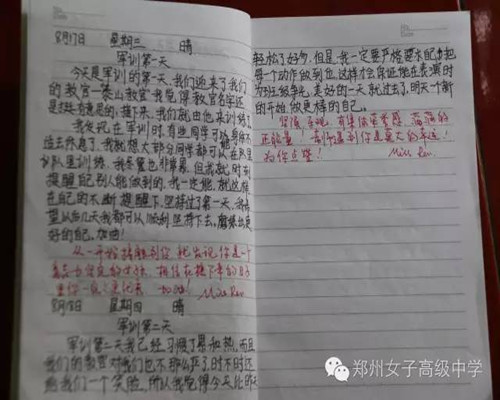 8月17日 星期三 晴
军训第一天
今天是军训的第一天,我们迎来了我们
的教官——泰山教官,我觉得教官名字还
是挺有意思的,接下来,我们就由他来训练了
我发现,在军训时,有些同学可能身体不
适去休息了,我就想大部分同学都可以在队里
训练,我尽管也非常累,但我就时刻
提醒自己别人能做到的,我一定能,就这样
在自己的不断提醒下,坚持过了第一天,我希
望以后几天我都可以顺利坚持下去,磨练出更
好的自己,加油!
从一开始接触到你,就发现你是一个
相信在接下来的日子
加油! Miss Ren
8月18日 星期四 晴
军训第二天
军训第二天我已经习惯了累和热,而且
我们的教官对我们也不那么严了,时不时还
给我们一个笑脸,所以我觉得今天比昨天
轻松了好多,但是,我一定要严格要求自己把
每一个动作做到位,这样才会保证能在表演时
为班级争光,美好的一天就过去了,明天一个新
的开始,做更棒的自己。
坚强、乐观、有集体荣誉感、满满的
正能量!能遇到你是莫大的幸运!
为你点赞! Miss Ren
郑州女子高级中学